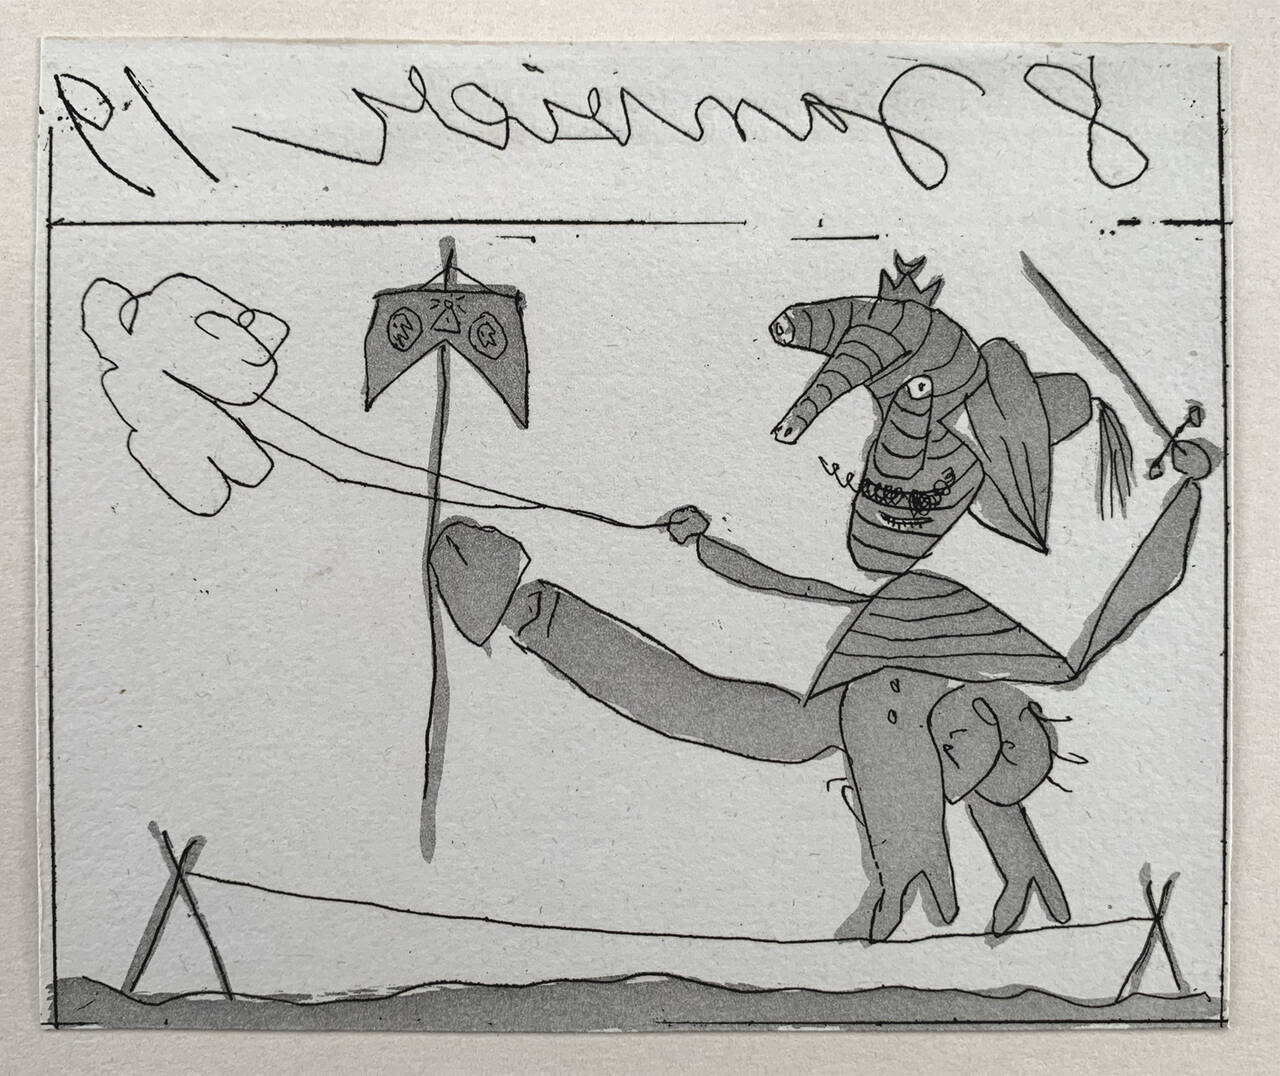 8 Janvier 19